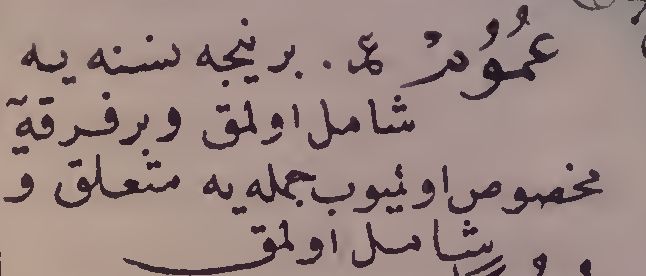 عُمُومٌ ع. برنیجه نسنه یه
شامل اولمق وبر فرقه یه
مخصوص اولمیوب جمله یه متعلق و
شامل اولمق